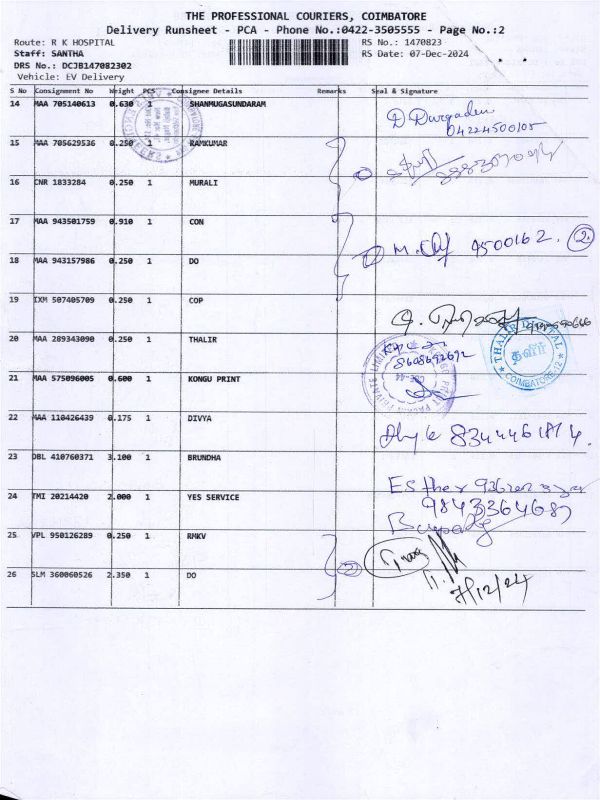 THE PROFESSIONAL COURIERS, COIMBATORE
Delivery Runsheet - PCA - Phone No.:0422-3505555 - Page No.:2
Route: R K HOSPITAL RS No.: 1470823
Staff: SANTHA RS Date: 07-Dec-2024
DRS No.: DCJB147082302
Vehicle: EV Delivery
S No Consignment No Weight PCS Consignee Details Remarks Seal & Signature
14 MAA 705140613 0.630 1 SHANMUGASUNDARAM
D Durgadevi
04224500105
15 MAA 705629536 0.250 1 RAMKUMAR
16 CNR 1833284 0.250 1 MURALI
17 MAA 943501759 0.910 1 CON
9500162. 2
18 MAA 943157986 0.250 1 DO
19 IXM 507405709 0.250 1 COP
20 MAA 289343090 0.250 1 THALIR
THALIR DIGITAL
தளிர்
COIMBATORE-12
8608692692
21 MAA 575096005 0.600 1 KONGU PRINT
22 MAA 110426439 0.175 1 DIVYA
23 DBL 410760371 3.100 1 BRUNDHA
Esther
24 TMI 20214420 2.000 1 YES SERVICE
9843364687
25 VPL 950126289 0.250 1 RMKV
26 SLM 360060526 2.350 1 DO
2
7/12/24